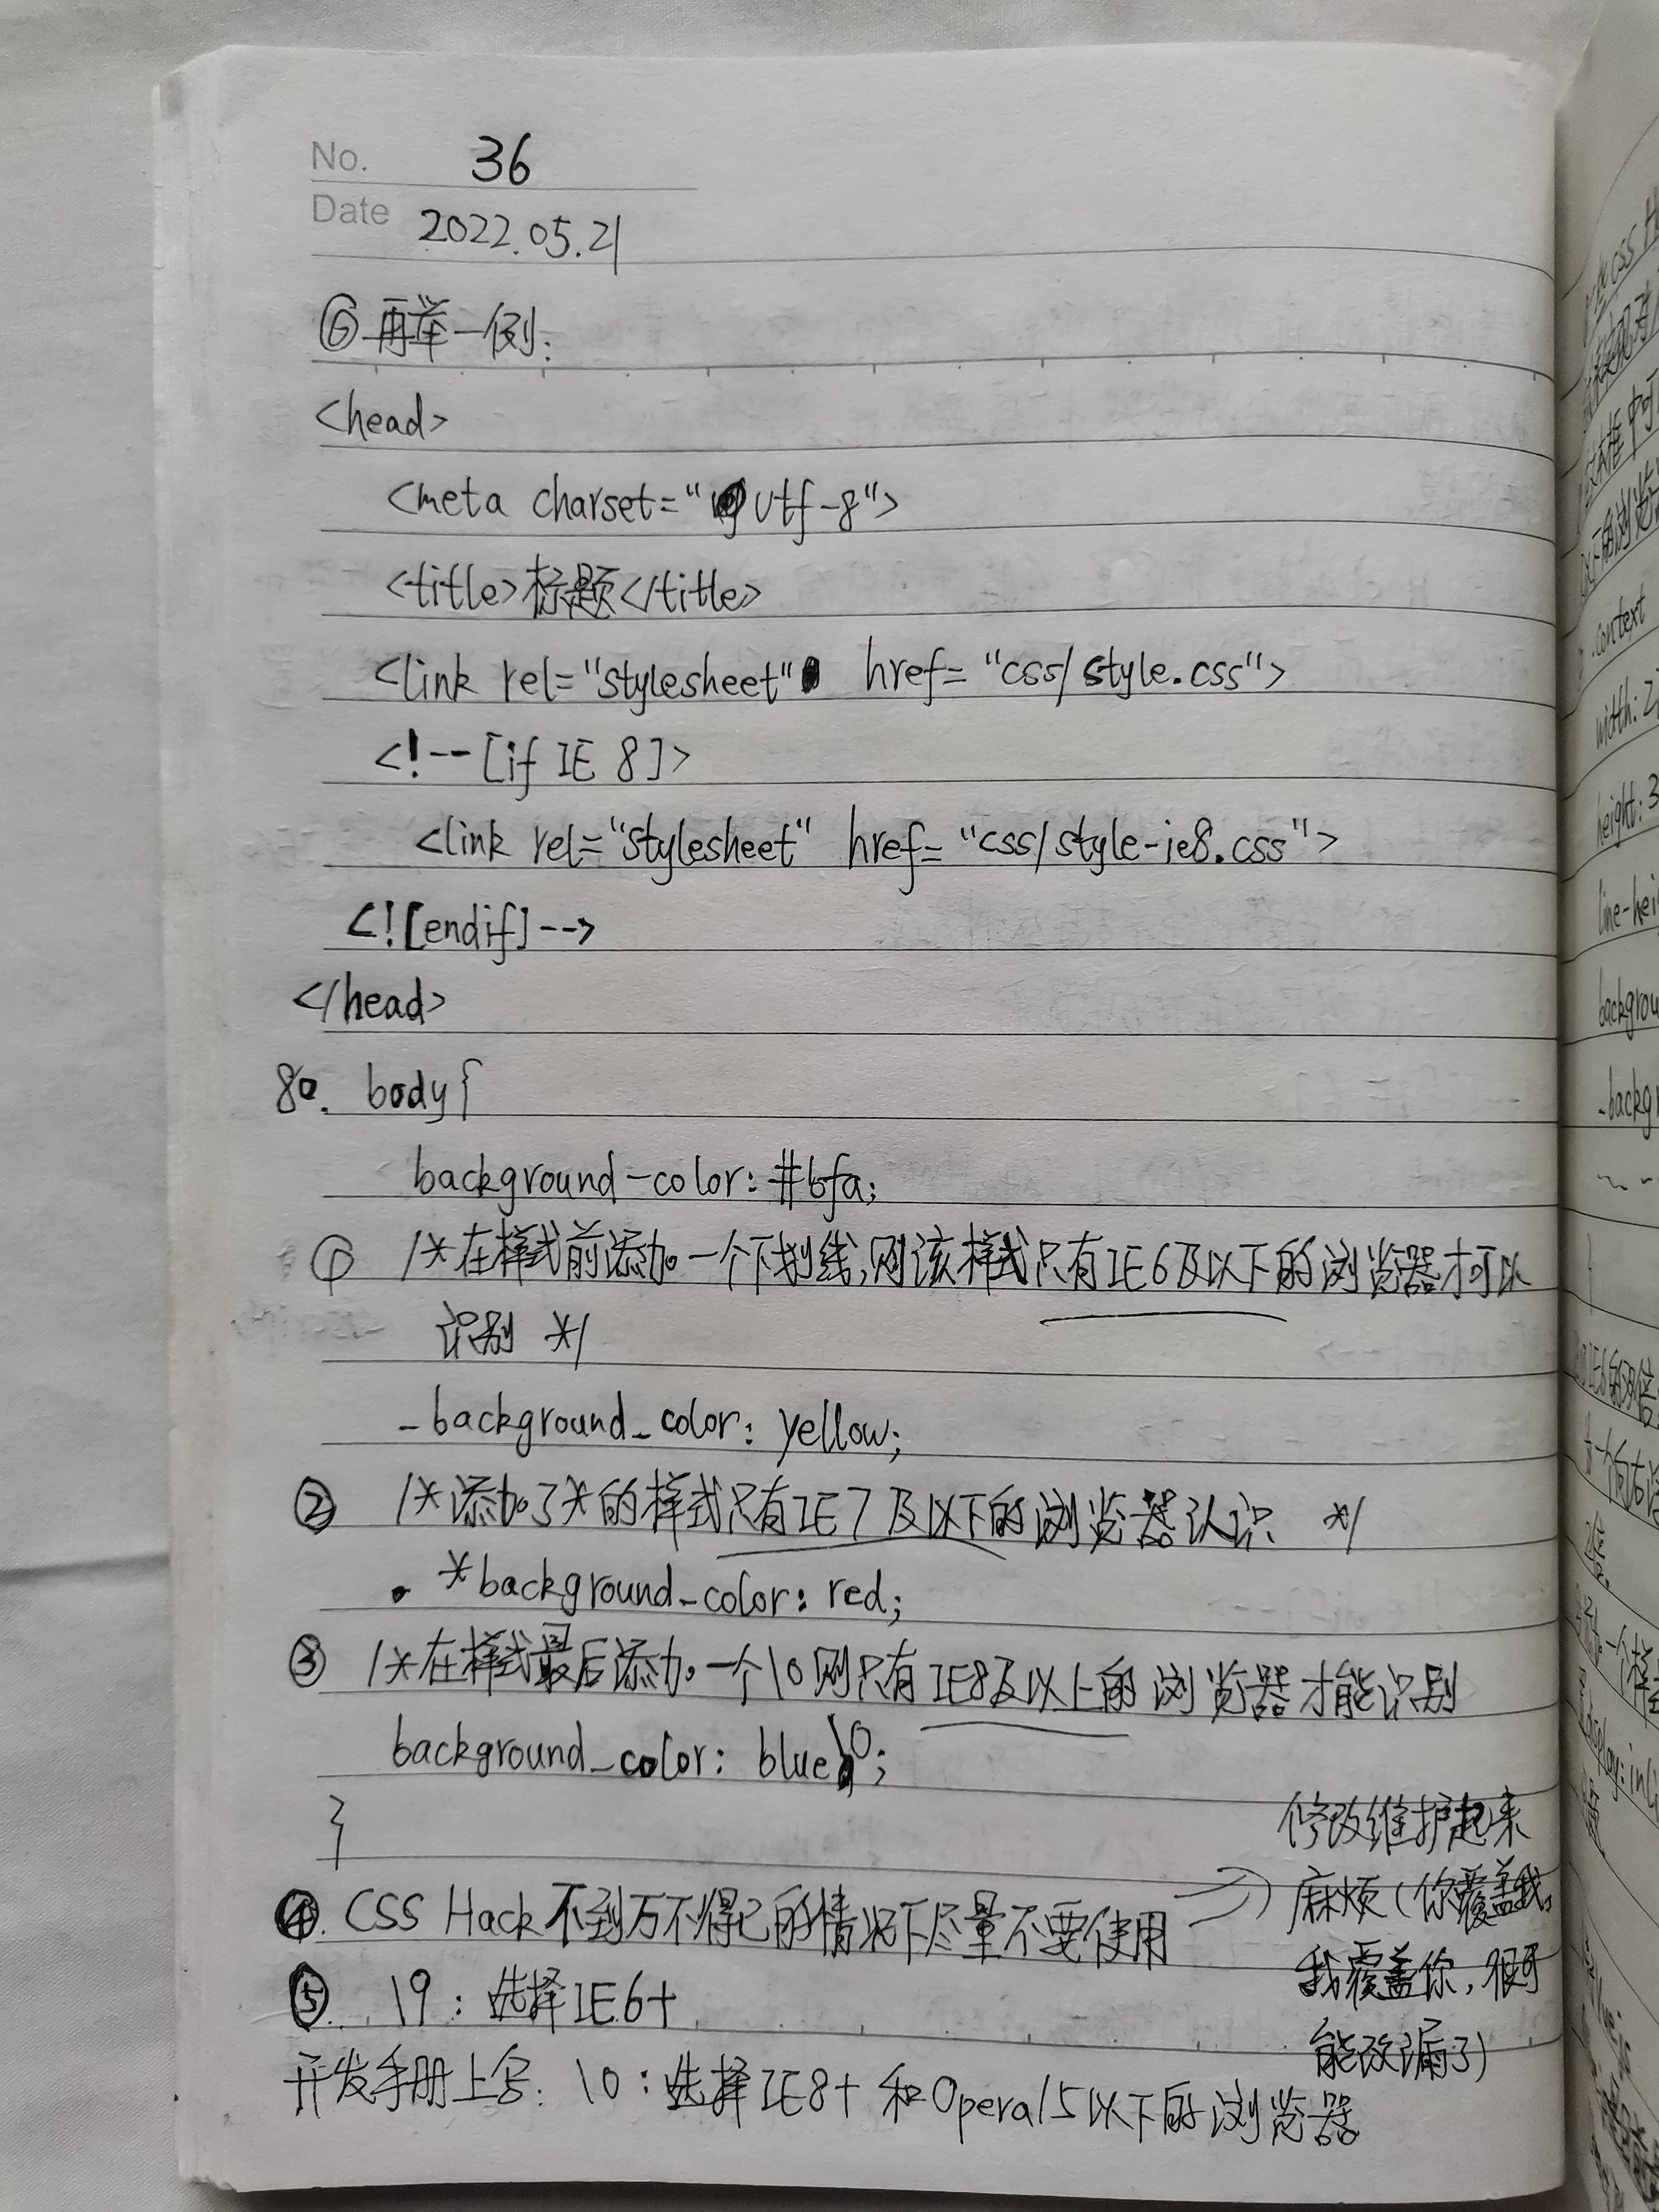 No. 36
Date 2022.05.21
⑥再举一例:
<head>
<meta charset="utf-8">
<title>标题</title>
<link rel="stylesheet" href="css/style.css">
<!--[if IE 8]>
<link rel="stylesheet" href="css/style-ie8.css">
<![endif]-->
</head>
80. body{
background-color: #bfa;
① /*在样式前添加一个下划线,则该样式只有IE6及以下的浏览器才可以
识别 */
_background_color: yellow;
② /*添加了*的样式只有IE7及以下的浏览器认识 */
*background_color: red;
③ /*在样式最后添加一个\0则只有IE8及以上的浏览器才能识别
background_color: blue\0;
}
④. CSS Hack不到万不得已的情况下尽量不要使用
修改维护起来
麻烦(你覆盖我,
我覆盖你,很可
能改漏了)
⑤. \9: 选择IE6+
开发手册上写: \0: 选择IE8+ 和Opera15以下的浏览器
css H
中可
以下的浏览
.context
width: 2
height: 3
line-hei
backgrou
_backgr
IE6的
一个向右
一个
display: inli